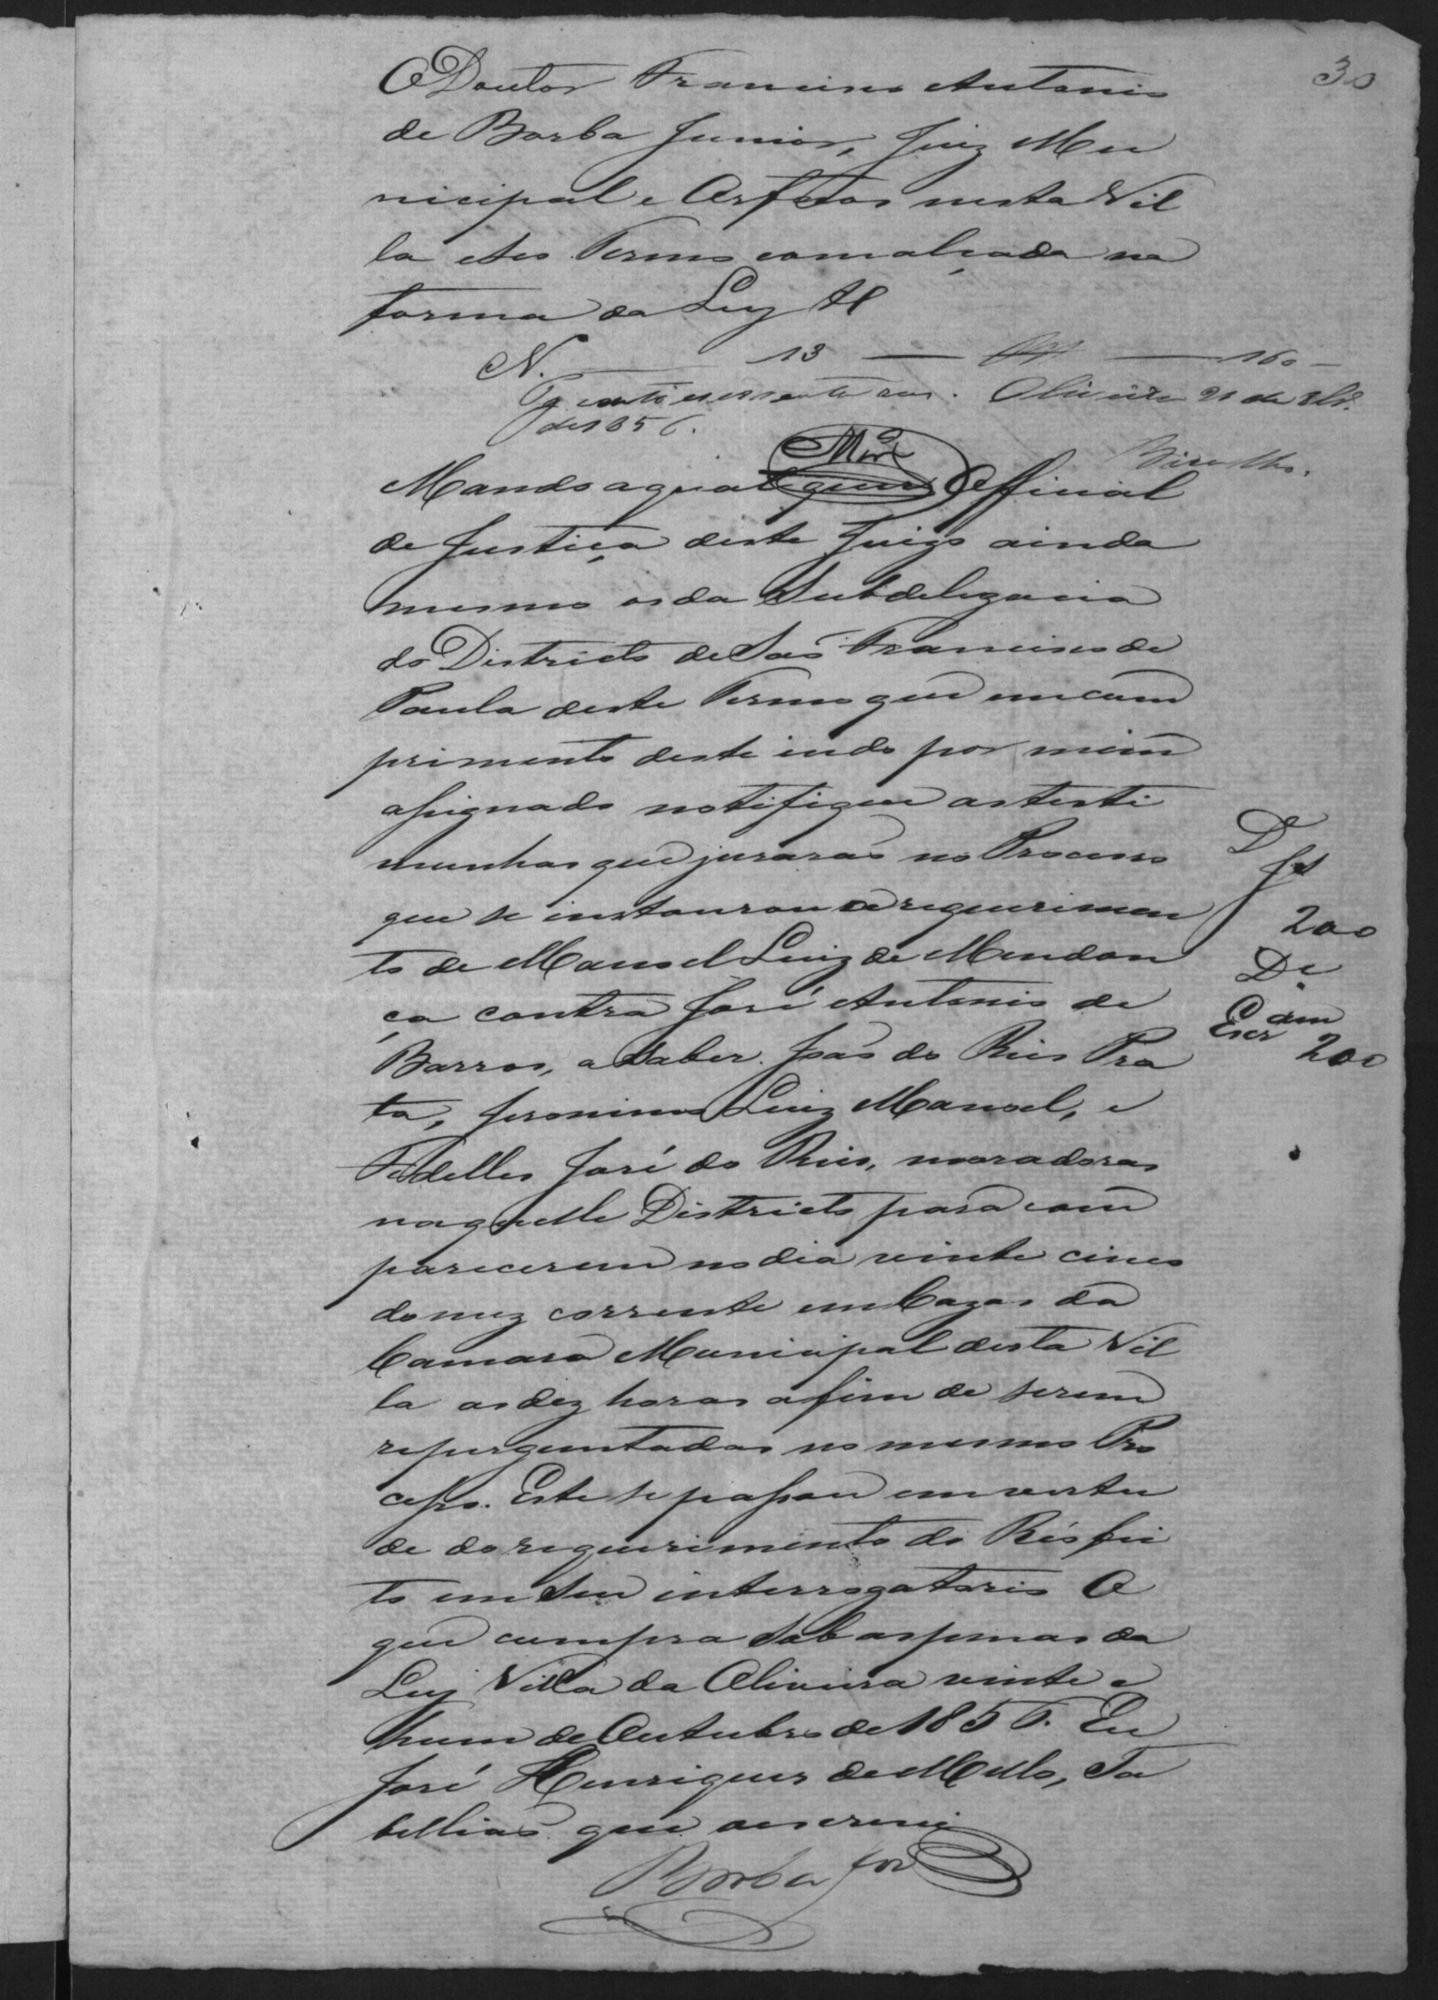 30
O Doutor Francisco Antonio
de Borba Junior, Juiz Mu
nicipal e Orfãos nesta Vil
la e seo Termo com alçada na
forma da Ley &
N. 13 160
Pg cento e sessenta reis. Oliveira 21 de 8br.º
de 1856.
Mando a qualquer Official
de Justiça deste Juizo ainda
mesmo os da Subdelegacia
do Districto de São Francisco de
Paula deste Termo que em cum
primento deste indo por mim
assignado notifique as testi
munhas que jurarão no Processo
que se instaurou a requerimen
to de Manoel Luiz de Mendon
ça contra José Antonio de
Barros, a saber. João do Rios Pra
ta, Jeronimo Luiz Manoel, e
Fidelles José do Rios, moradoras
naquelle Districto para com
parecerem no dia vinte cinco
do mez corrente em Cazas da
Camara Municipal desta Vil
la as dez horas afim de serem
reperguntadas no mesmo Pro
cesso. Este se passou em vertu
de do requerimento do Réo fei
to em seu interrogatorio O
que cumpra sob as penas da
Ley Villa da Oliveira vinte e
hum de Outubro de 1856. Eu
José Henriques de Mello, Ta
bellião que o escrevi
Borba Jor
D
J
200
De
Cam
Escr 200